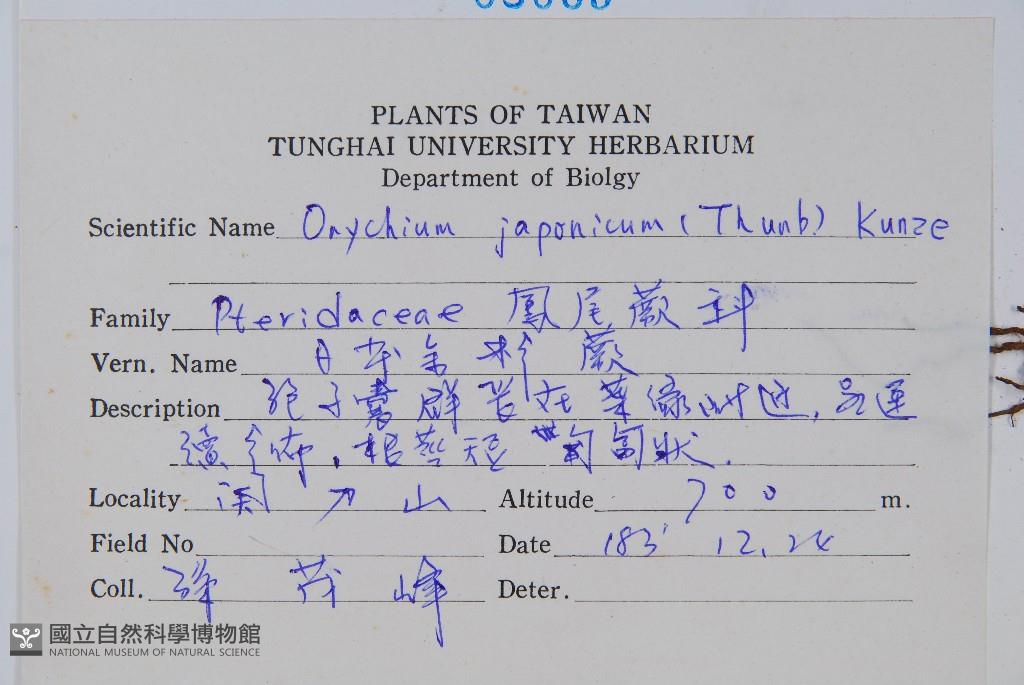 PLANTS OF TAIWAN
TUNGHAI UNIVERSITY HERBARIUM
Department of Biolgy
Scientific Name Onychium japonicum (Thunb.) Kunze
Family Pteridaceae 鳳尾蕨科
Vern. Name 日本金粉蕨
Description 孢子囊群長在葉緣附近,呈連
續分佈,根莖短匍匐狀.
Locality 山
Altitude 700 m.
Field No
Date 12.24
Coll. 茂峰
Deter.
國立自然科學博物館
NATIONAL MUSEUM OF NATURAL SCIENCE